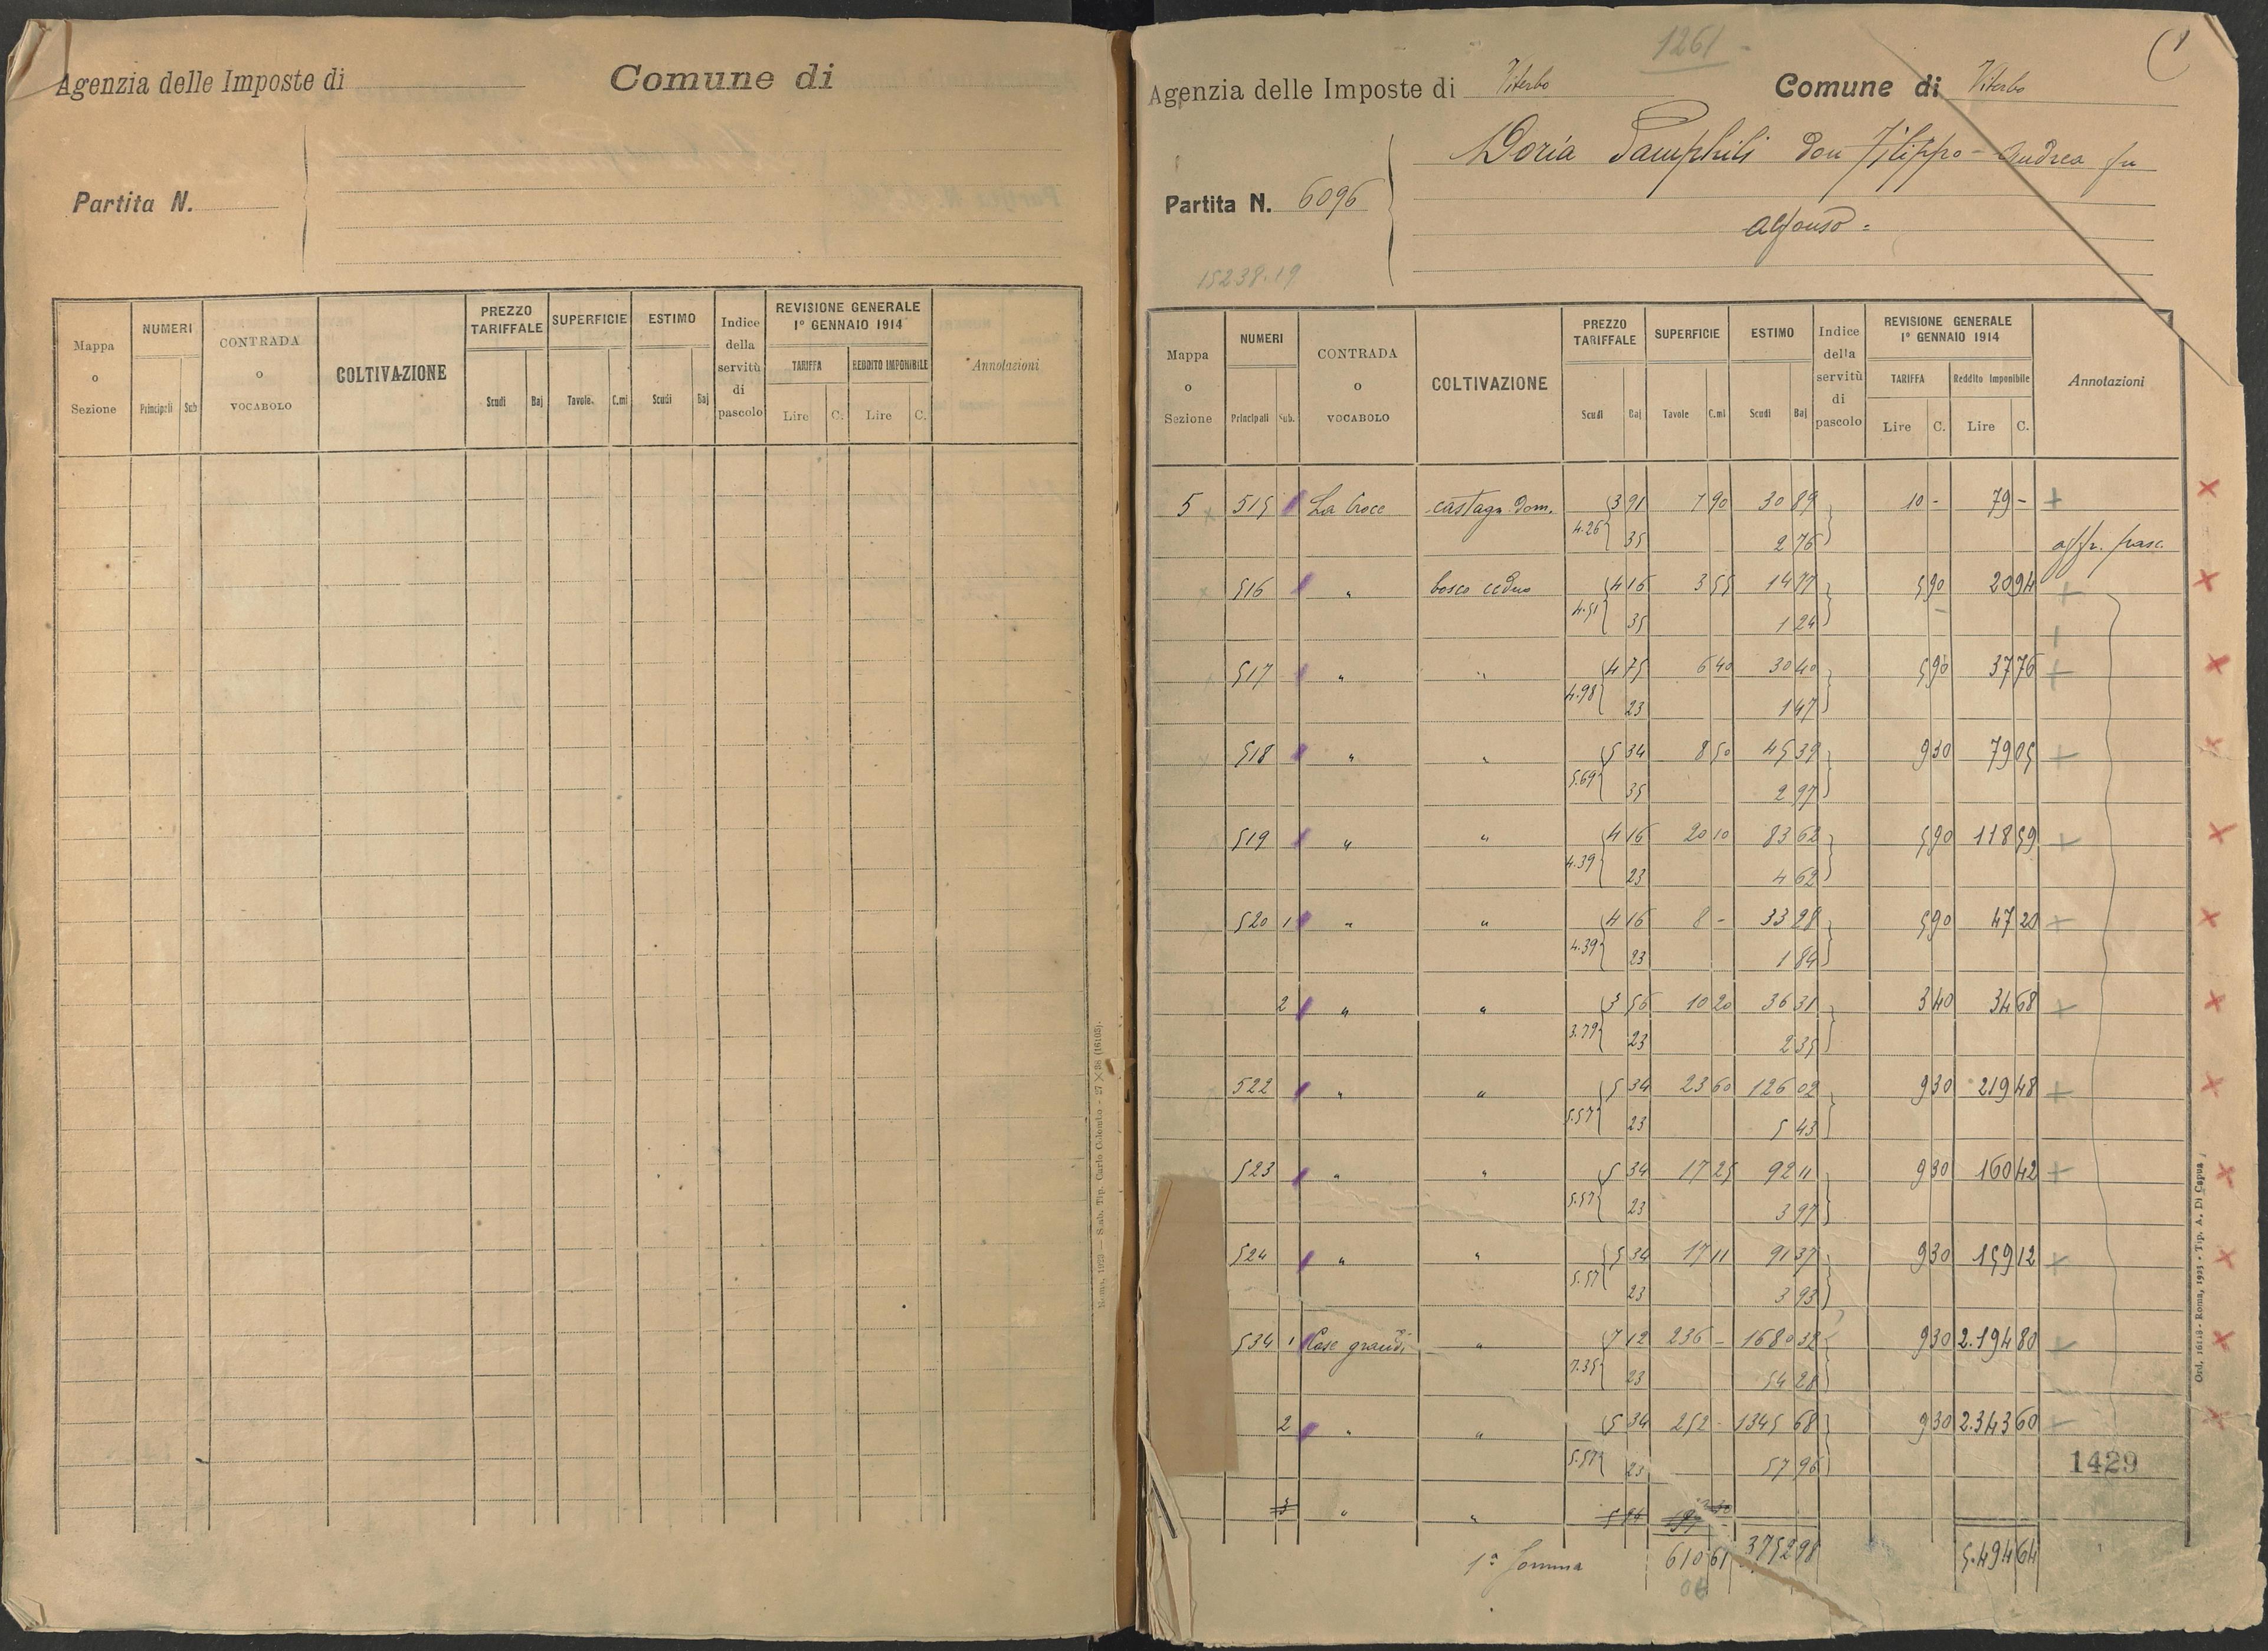 Agenzia delle Imposte di
Comune di
Partita N.
Mappa o Sezione | NUMERI Principali Sub | CONTRADA o VOCABOLO | COLTIVAZIONE | PREZZO TARIFFALE Scudi Baj | SUPERFICIE Tavole. C.mi | ESTIMO Scudi Baj | Indice della servitù di pascolo | REVISIONE GENERALE 1° GENNAIO 1914 TARIFFA Lire C. REDDITO IMPONIBILE Lire C. | Annotazioni
Roma, 1923 — Stab. Tip. Carlo Colombo - 27 × 38 (16103).
1261 -
Agenzia delle Imposte di Viterbo
Comune di Viterbo
Doria Pamphili don Filippo-Andrea fu
Partita N. 6096
Alfonso =
15238.19
Mappa o Sezione | NUMERI Principali Sub. | CONTRADA o VOCABOLO | COLTIVAZIONE | PREZZO TARIFFALE Scudi Baj | SUPERFICIE Tavole C.mi | ESTIMO Scudi Baj | Indice della servitù di pascolo | REVISIONE GENERALE 1° GENNAIO 1914 TARIFFA Lire C. Reddito Imponibile Lire C. | Annotazioni
5 x 515 La Croce castagn. dom. 3 91 7 90 30 89 10 - 79 - +
4.26 35 2 76 affr. pasc.
x 516 " bosco ceduo 4 16 3 55 14 77 5 90 20 94 +
4.51 35 1 24
517 " " 4 75 6 40 30 40 5 90 37 76 +
4.98 23 1 47
518 " " 5 34 8 50 45 39 9 30 79 05 +
5.69 35 2 97
519 " " 4 16 20 10 83 62 5 90 118 59 +
4.39 23 4 62
520 1 " " 4 16 8 - 33 28 5 90 47 20 +
4.39 23 1 84
2 " " 3 56 10 20 36 31 3 40 34 68 +
3.79 23 2 35
522 " " 5 34 23 60 126 02 9 30 219 48 +
5.57 23 5 43
523 " " 5 34 17 25 92 11 9 30 160 42 +
5.57 23 3 97
524 " " 5 34 17 11 91 37 9 30 159 12 +
5.57 23 3 93
534 1 Case grandi " 7 12 236 - 1680 32 9 30 2.194 80
7.35 23 54 28
2 " " 5 34 252 - 1345 68 9 30 2.343 60
5.57 23 57 96
1429
3 " "
1ª Somma 610 61 3752 98 5.494 64
Ord. 16113 - Roma, 1925 - Tip. A. Di Capua